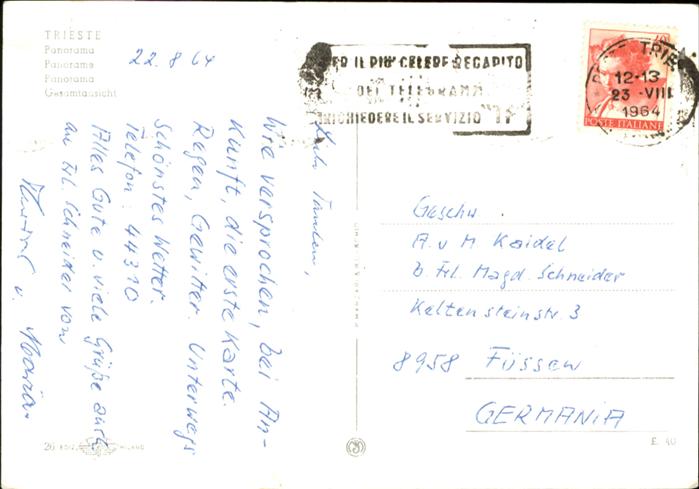 TRIESTE
Panorama
Panorama
Panorama
Gesamtansicht
22.8.64
PER IL PIU' CELERE RECAPITO
DEI TELEGRAMMI
RICHIEDERE IL SERVIZIO "TF"
TRIE
12-13
23-VIII
1964
POSTE ITALIANE
Liebe Tanten,
Wie versprochen, bei An-
kunft, die erste Karte.
Regen, Gewitter. Unterwegs
Schönstes Wetter.
Telefon: 44310
Alles Gute u. viele Grüße auch
an Frl. Schneider von
u. Maria.
Geschw
A. u M Kaidel
b. Frl. Magd. Schneider
Keltensteinstr. 3
8958 Füssen
GERMANIA
26 EDIZ. MILANO
E. 40